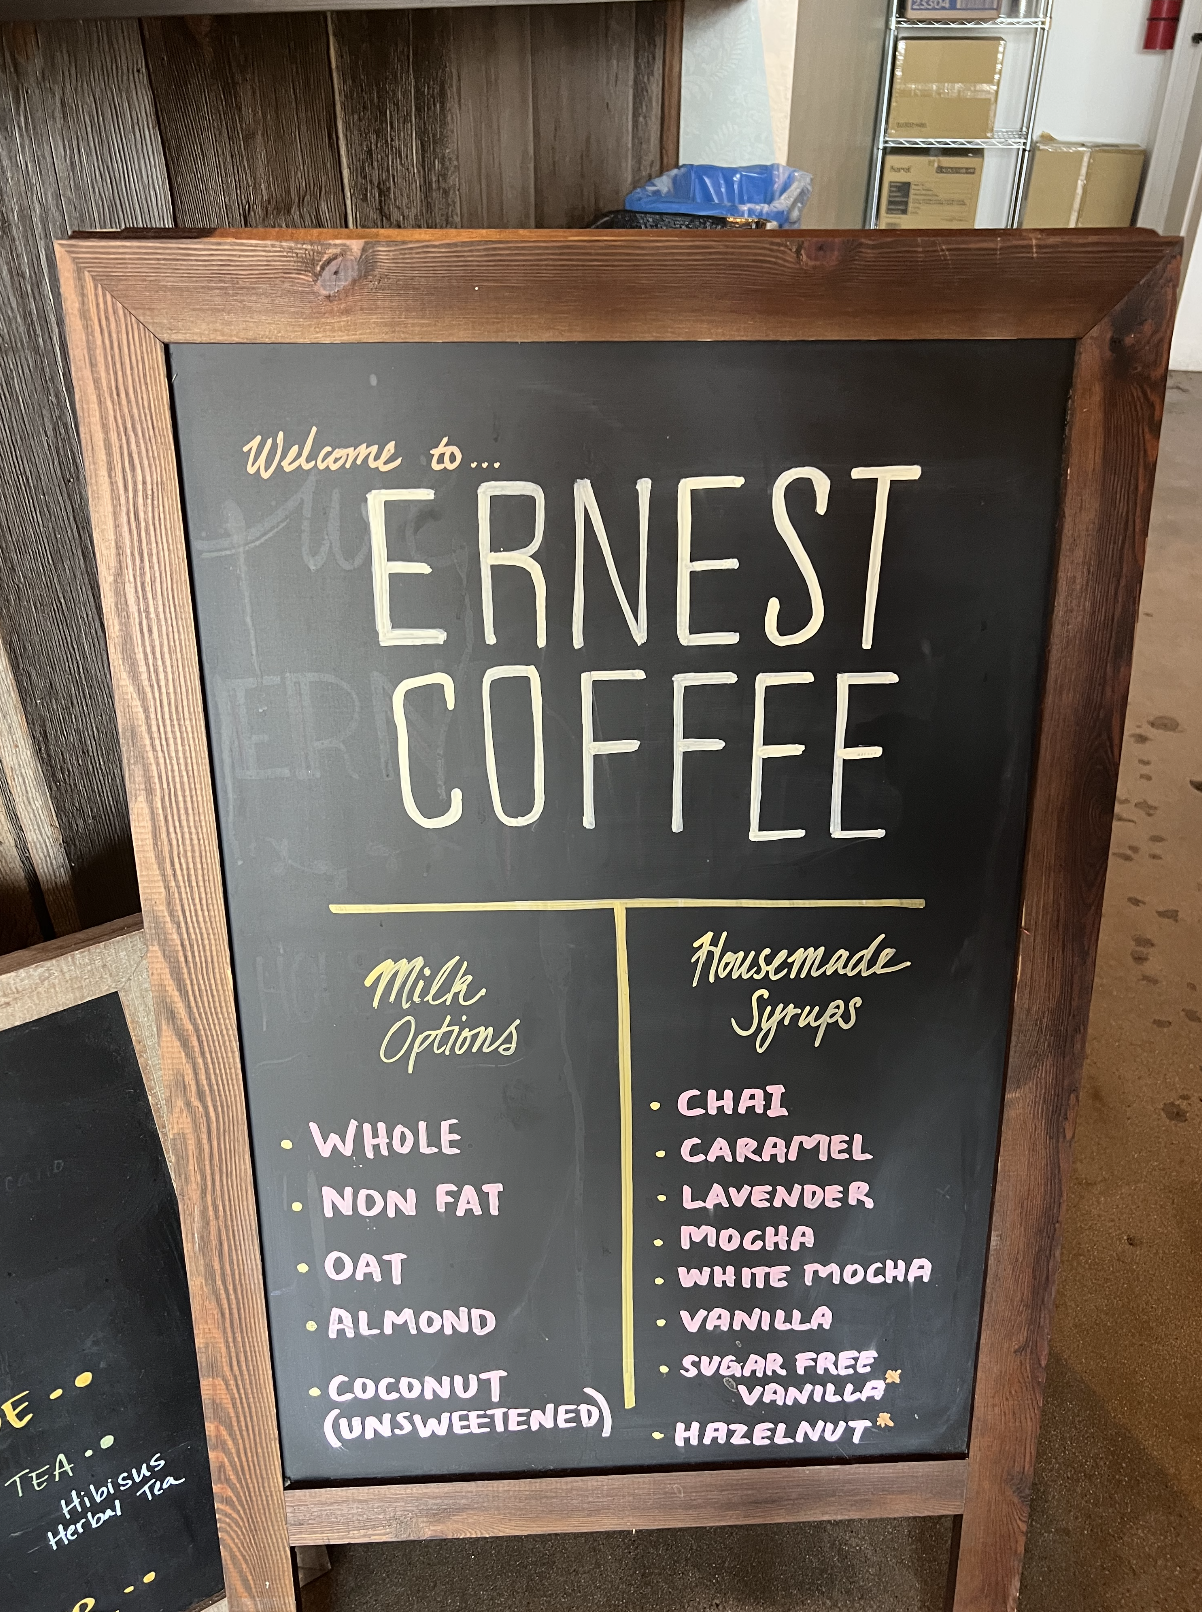 Welcome to...
ERNEST
COFFEE
Milk
Options
• WHOLE
• NON FAT
• OAT
• ALMOND
• COCONUT
(UNSWEETENED)
Housemade
Syrups
• CHAI
• CARAMEL
• LAVENDER
• MOCHA
• WHITE MOCHA
• VANILLA
• SUGAR FREE
VANILLA*
• HAZELNUT*
TEA
Hibisus
Herbal Tea